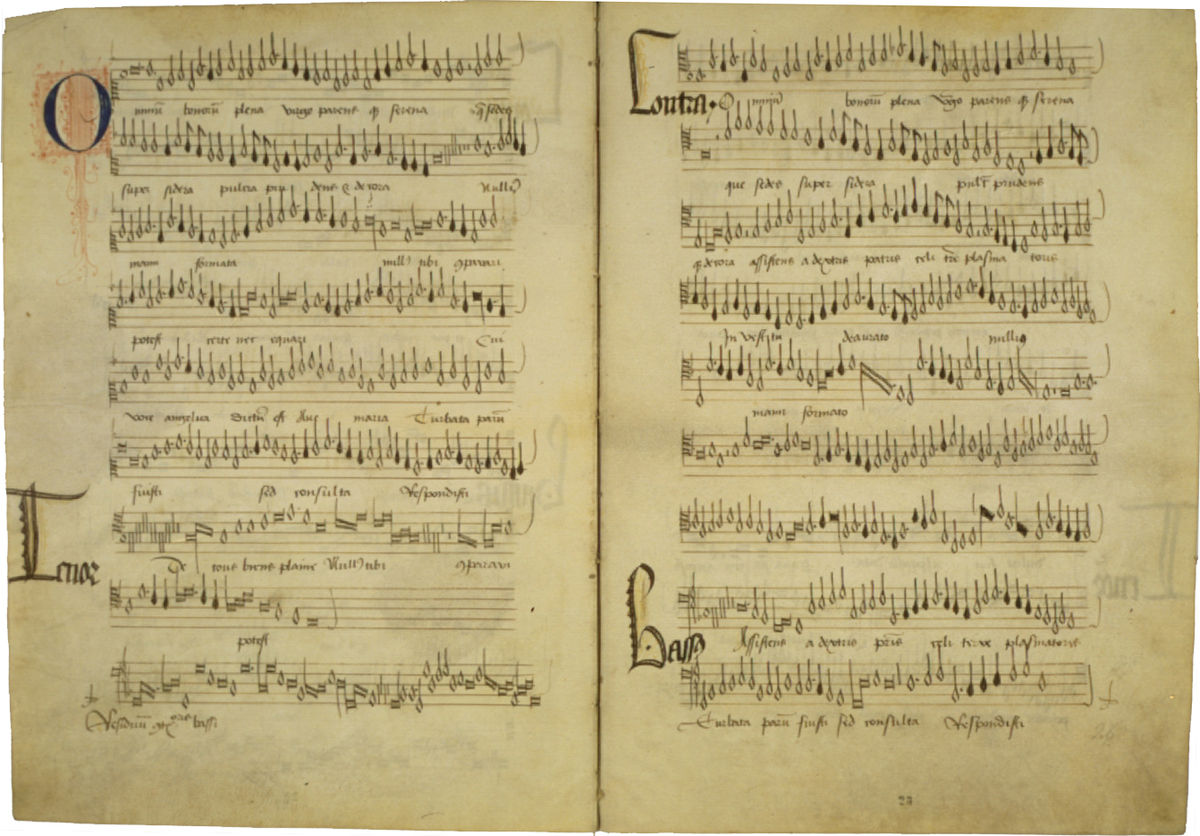 O mniū bonorū plena virgo parens qꝫ serena q̄ sedes
super sidera pulcra pru dens & decora Nulliꝰ
mann formata nulliꝰ tibi ꝯparari
potest certe nec equari Cui
voce angelica dictū est Aue maria Turbata parū
fuisti sed consulta Respondisti
Tenor
De tous biens plaine Nulliꝰ tibi ꝯparari
potest
Residuū bassi
Contra O mniū bonorū plena virgo parens qꝫ serena
que sedes super sidera pulcͬ prudens
qꝫ decora assistens a dextris patris celi tre plasma toris
In vestitu deaurato nulliꝰ
mann formato
Bassꝰ Assistens a dextris pris celi terre plasmatoris
Turbata parū fuisti sed consulta Respondisti